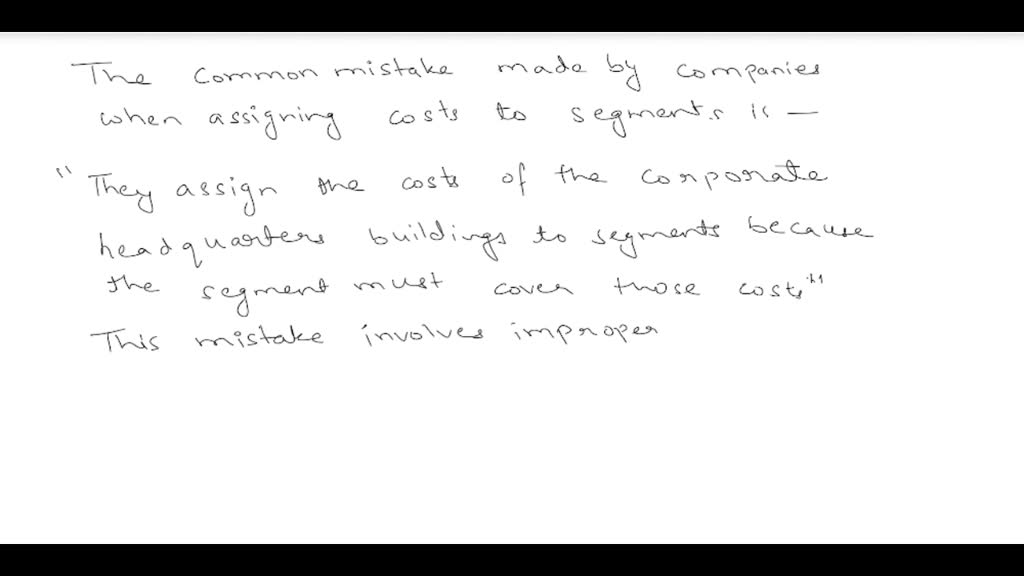 The common mistake made by companies
when assigning costs to segments is —
" They assign the costs of the corporate
headquarters buildings to segments because
the segment must cover those costs"
This mistake involves improper